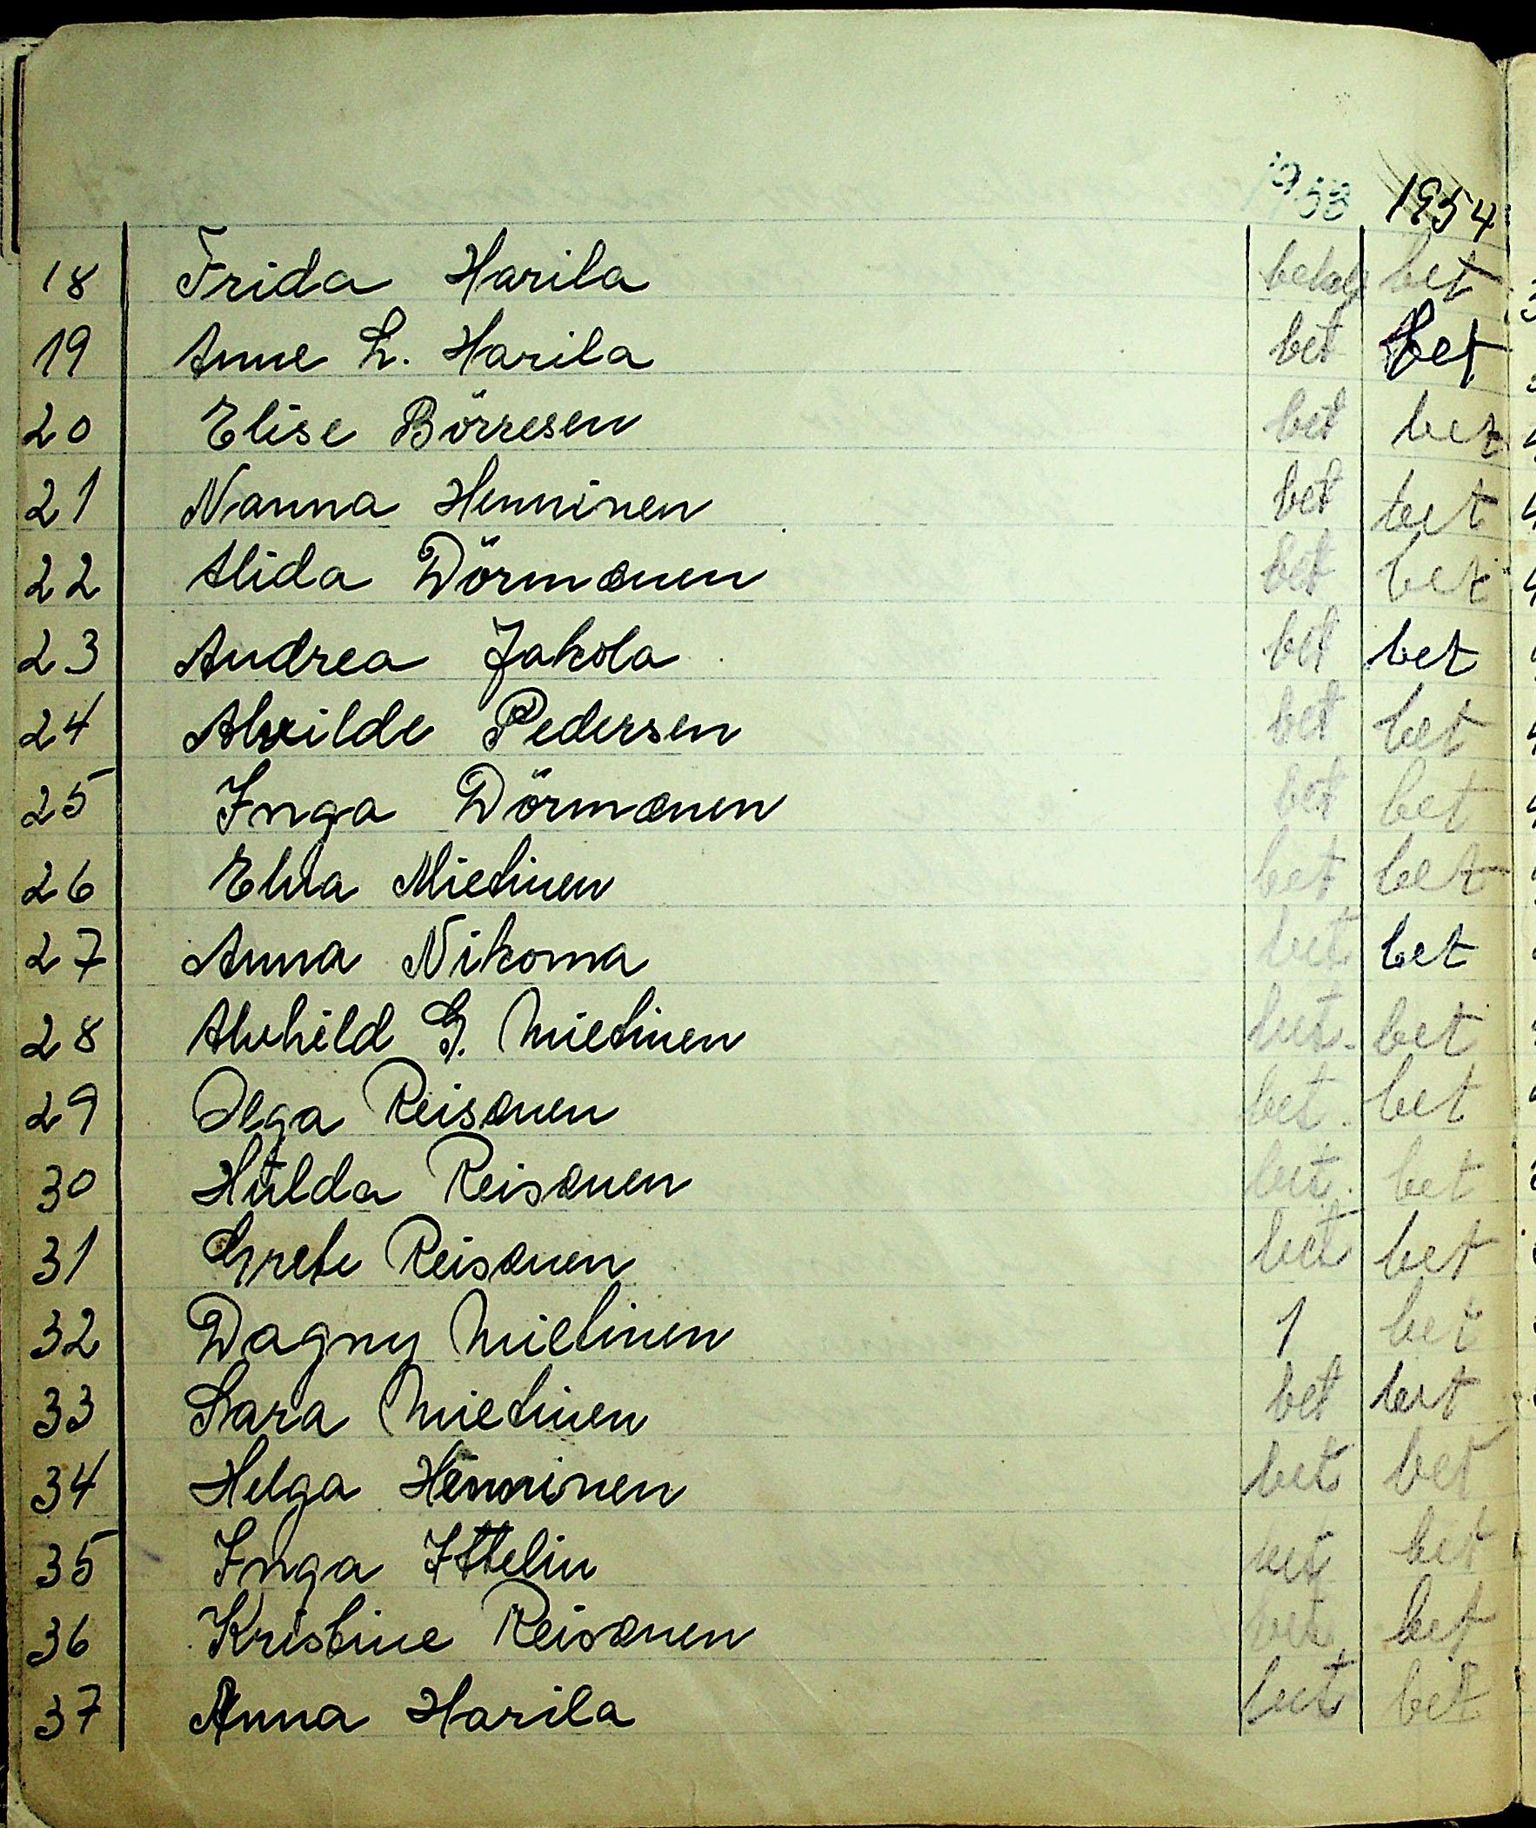 1953 1954
18 Frida Harila betalg bet
19 Anne L. Harila bet bet
20 Elise Börresen bet bet
21 Nanna Henninen bet bet
22 Alida Dörmænen bet bet
23 Andrea Jakola bet bet
24 Alvilde Pedersen bet bet
25 Inga Dörmænen bet bet
26 Elva Mietinen bet bet
27 Anna Nikoma bet bet
28 Alvhild G. Mietinen bet. bet
29 Olga Reisænen bet. bet
30 Hulda Reisænen bet. bet
31 Grete Reisænen bet bet
32 Dagny Mietinen 1 bet
33 Sara Mietinen bet bet
34 Helga Henninen bet bet
35 Inga Ittelin bet bet
36 Kristine Reisænen bet bet
37 Anna Harila bet bet